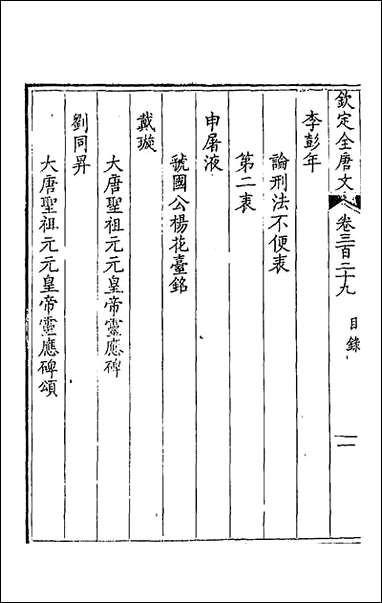 欽定全唐文 卷三百二十九 目錄 一
李彭年
論刑法不便表
第二表
申屠液
虢國公楊花臺銘
戴璇
大唐聖祖元元皇帝靈應碑
劉同昇
大唐聖祖元元皇帝靈應碑頌